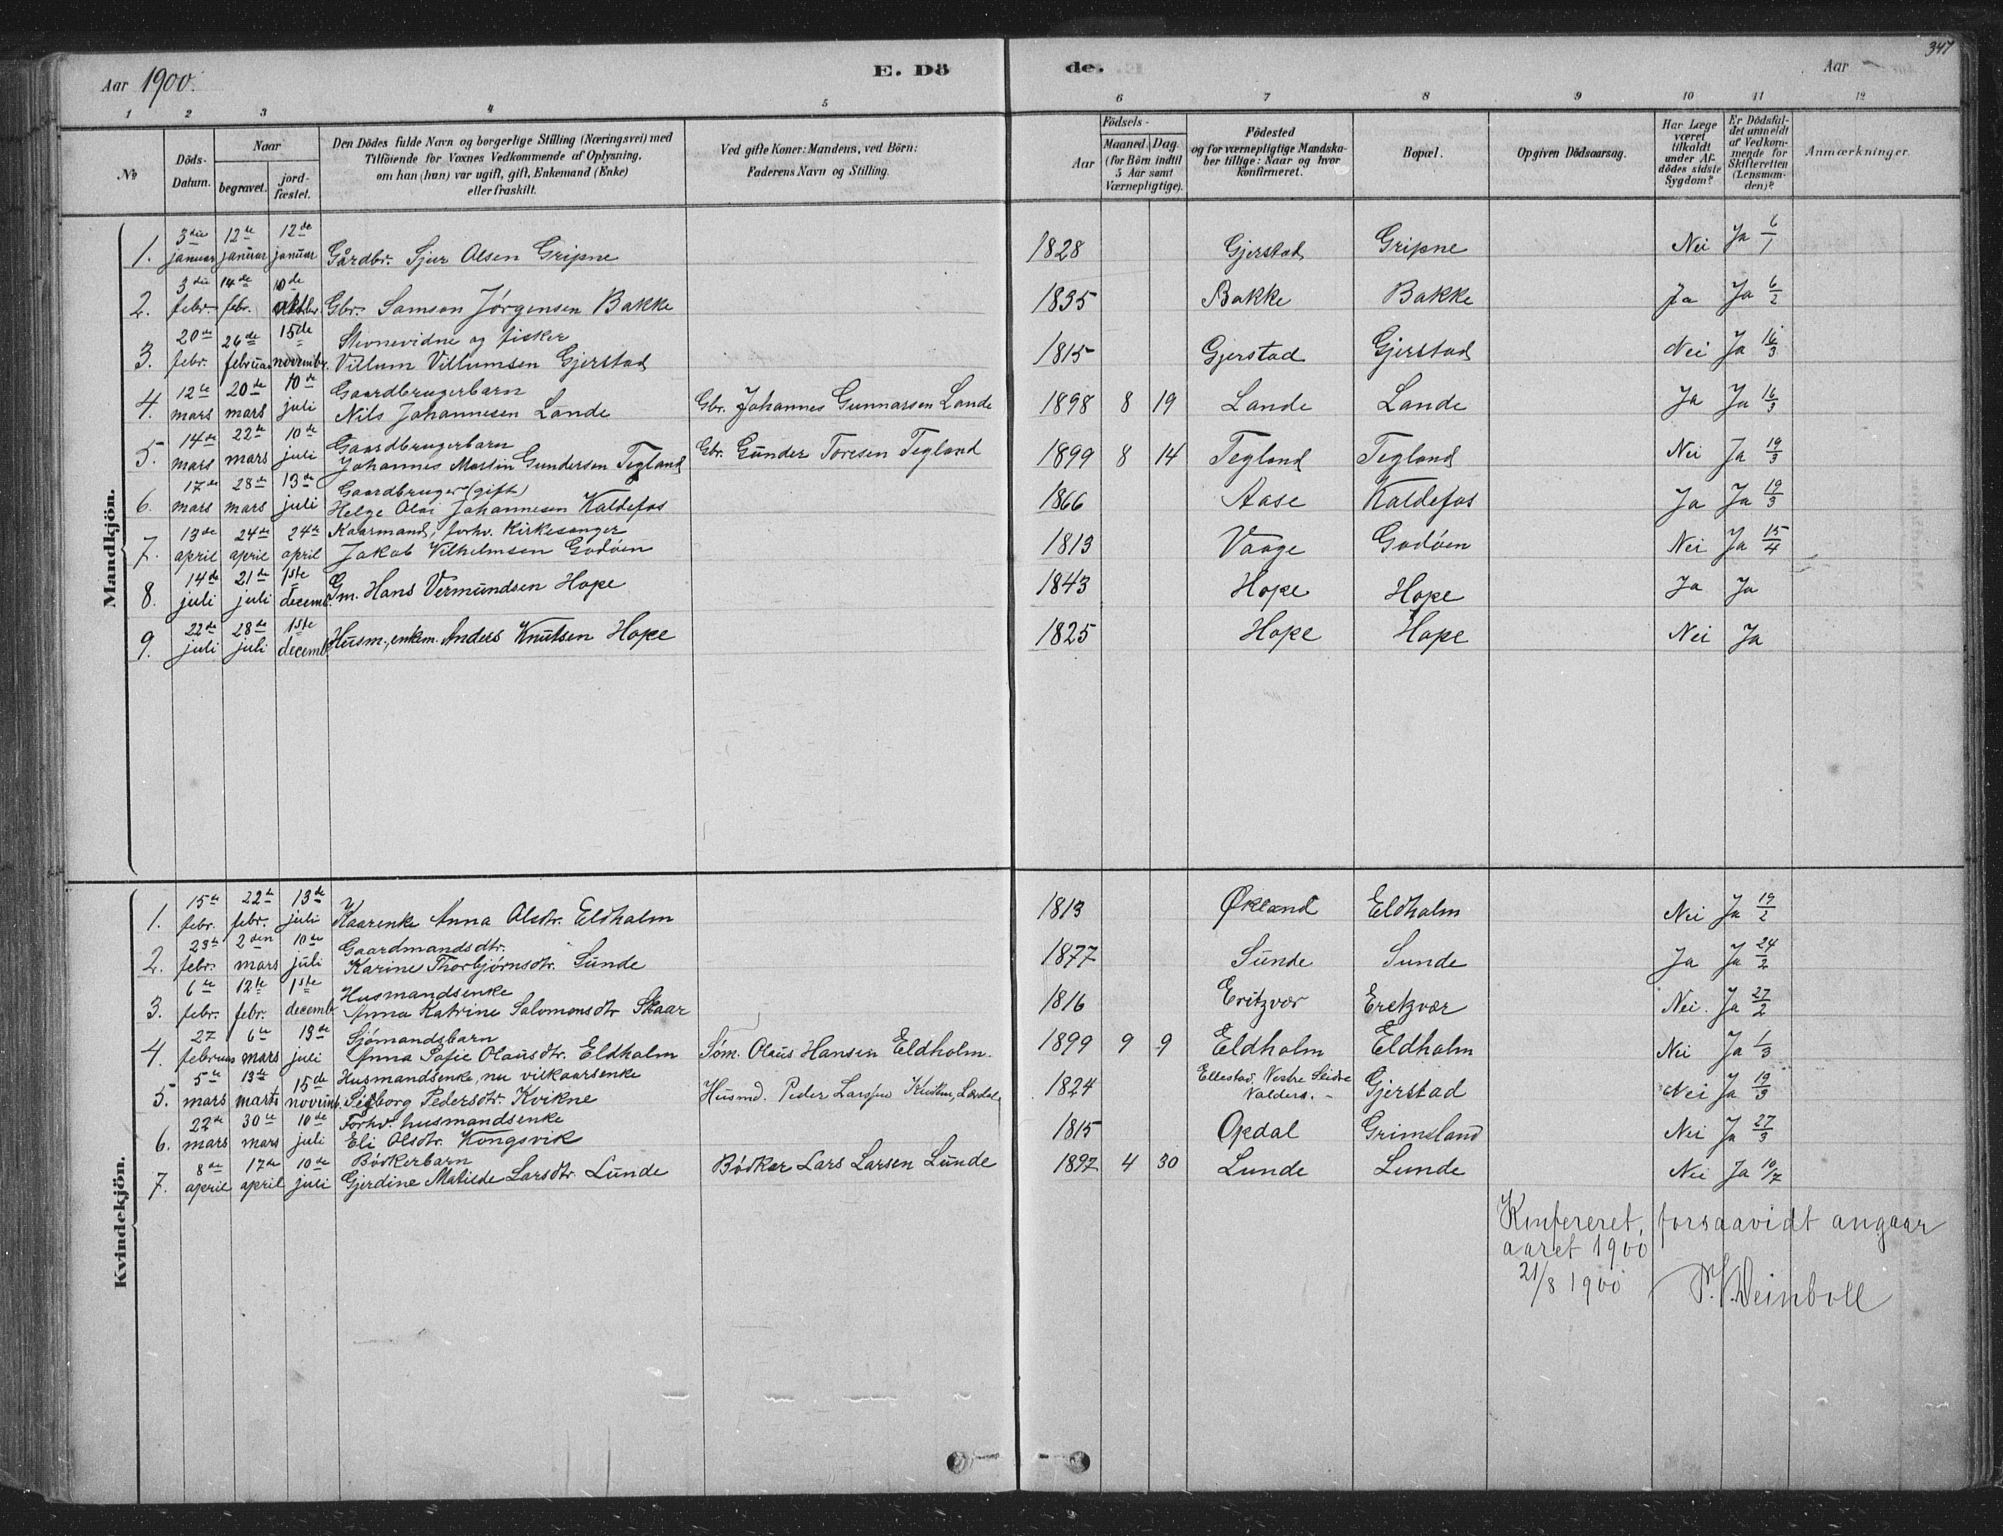 347
Aar 1900. E. Dö de. Aar
1 2 3 4 5 6 7 8 9 10 11 12
№ Döds-Datum. Naar begravet. jordfæstet. Den Dödes fulde Navn og borgerlige Stilling (Næringsvei) med Tilföiende for Voxnes Vedkommende af Oplysning, om han (hun) var ugift, gift, Enkemand (Enke) eller fraskilt. Ved gifte Koner: Mandens, ved Börn: Faderens Navn og Stilling. Aar Födsels- Maaned Dag. (for Börn indtil 5 Aar samt Værnepligtige). Födested og for værnepligtige Mandskaber tillige: Naar og hvor konfirmeret. Bopæl. Opgiven Dödsaarsag. Har Læge været tilkaldt under Afdödes sidste Sygdom? Er Dödsfaldet anmeldt af Vedkommende for Skifteretten (Lensmanden)? Anmærkninger.
Mandkjön.
1. 3die januar 12te januar 12de januar Gårdbr. Sjur Olsen Gripne 1828 Gjerstad Gripne Nei Ja 6/1
2. 3die febr. 14de febr. 10de oktbr. Gbr. Samson Jørgensen Bakke 1835 Bakke Bakke Ja Ja 6/2
3. 20de febr. 26de februar 15de novembr. Stevnevidne og fisker
Villum Villumsen Gjerstad 1815 Gjerstad Gjerstad Nei Ja 16/3
4. 12te mars 20de mars 10de juli Gaardbrugerbarn
Nils Johannesen Lande Gbr. Johannes Gunnarsen Lande 1898 8 19 Lande Lande Ja Ja 16/3
5. 14de mars 22de mars 10de juli Gaardbrugerbarn
Johannes Martin Gundersen Tegland Gbr. Gunder Toresen Tegland 1899 8 14 Tegland Tegland Nei Ja 19/3
6. 17de mars 28de mars 13de juli Gaardbruger (gift)
Helge Olai Johannesen Kaldefos 1866 Aase Kaldefos Ja Ja 19/3
7. 13de april 24de april 24de april Kaarmand, forhv. Kirkesanger
Jakob Vilhelmsen Godøen 1813 Vaage Godøen Nei Ja 15/4
8. 14de juli 21de juli 1ste decemb. Gm. Hans Vermundsen Hope 1843 Hope Hope Ja Ja
9. 22de juli 28de juli 1ste decemb. Husm., enkm. Anders Knutsen Hope 1825 Hope Hope Nei Ja
Kvindekjön.
1. 15de febr. 22de febr. 13de juli Kaarenke Anna Olsdtr. Eldholm 1813 Økland Eldholm Nei Ja 19/2
2. 23de febr. 2den mars 10de juli Gaardmandsdtr.
Karine Thorbjørnsdtr. Sunde 1877 Sunde Sunde Ja Ja 24/2
3. 6te febr. 12te febr. 1ste decemb. Husmandsenke
Anna Katrine Salomonsdtr Skaar 1816 Eritzvær Eretzvær Nei. Ja 27/2
4. 27 februar 6te mars 13de juli Sjömandsbarn
Anna Sofie Olausdtr. Eldholm Søm. Olaus Hansen Eldholm. 1899 9 9 Eldholm Eldholm Nei Ja 1/3
5. 5te mars 13de marts 15de novemb. Husmandsenke, nu vilkaarsenke
Sigborg Pedersdtr. Kvikne Husmd. Peder Larsen Kvikne, Lærdal 1824 Ellestad, Vestre Slidre
Valders. Gjerstad Nei Ja 19/3
6. 22de mars 30te mars 10de juli Forhv. husmandsenke
Eli Olsdtr. Kongsvik 1815 Opdal Grimsland Nei Ja 27/3
7. 8de april 17de april 10de juli Bödkerbarn
Gjerdine Matilde Larsdtr. Lunde Bödker Lars Larsen Lunde 1897 4 30 Lunde Lunde Nei Ja 10/7
Konfereret, forsaavidt angaar
aaret 1900
21/8 1900 P. V. Deinboll